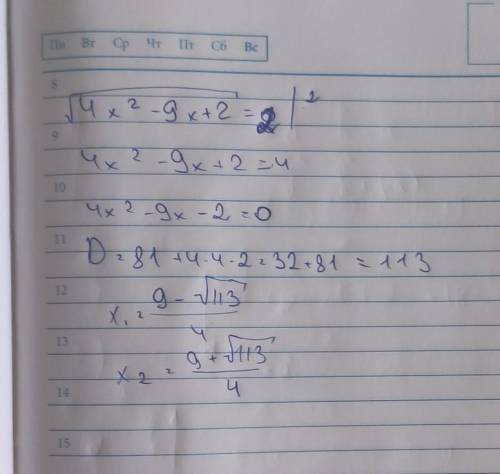 Пн Вт Ср Чт Пт Сб Вс
8
√4x² - 9x + 2 = 2 |²
9
4x² - 9x + 2 = 4
10
4x² - 9x - 2 = 0
11
D = 81 + 4·4·2 = 32 + 81 = 113
12
x₁ = (9 - √113)/4
13
x₂ = (9 + √113)/4
14
15